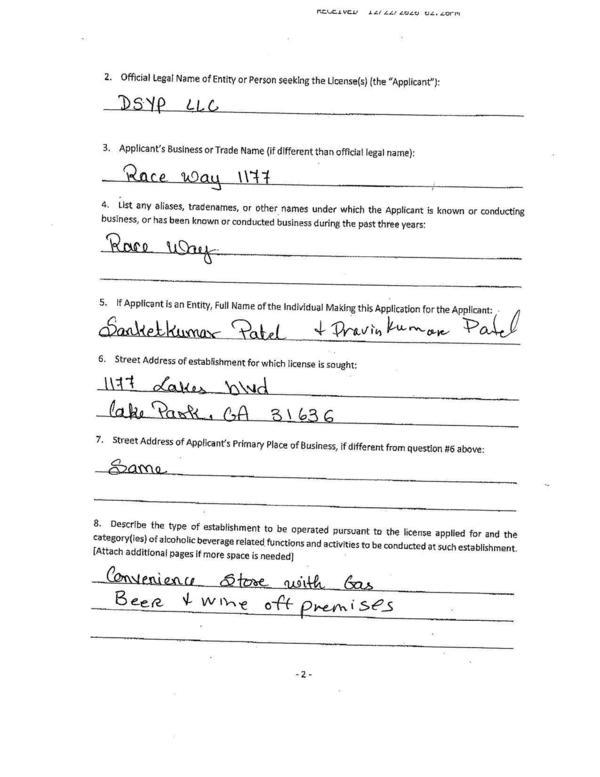 RECEIVED 12/22/2020 02:26PM
2. Official Legal Name of Entity or Person seeking the License(s) (the "Applicant"):
DSYP LLC
3. Applicant's Business or Trade Name (if different than official legal name):
Race way 1177
4. List any aliases, tradenames, or other names under which the Applicant is known or conducting
business, or has been known or conducted business during the past three years:
Race Way
5. If Applicant is an Entity, Full Name of the Individual Making this Application for the Applicant:
Sanketkumar Patel + Pravinkumar Patel
6. Street Address of establishment for which license is sought:
1177 Lakes blvd
Lake Park, GA 31636
7. Street Address of Applicant's Primary Place of Business, if different from question #6 above:
Same
8. Describe the type of establishment to be operated pursuant to the license applied for and the
category(ies) of alcoholic beverage related functions and activities to be conducted at such establishment.
[Attach additional pages if more space is needed]
Convenience Store with Gas
Beer & wine off premises
- 2 -